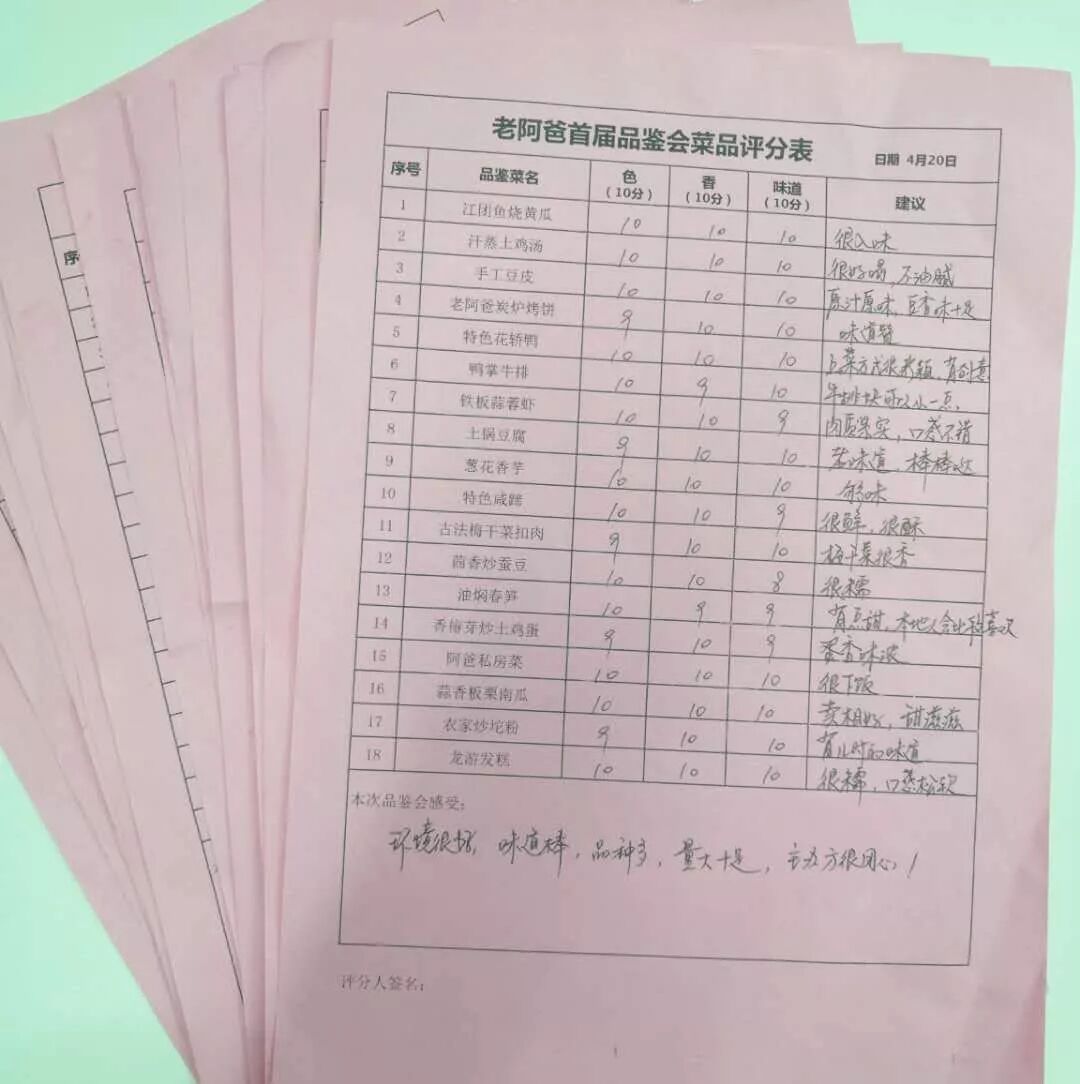 老阿爸首届品鉴会菜品评分表 日期 4月20日
序号 品鉴菜名 色（10分） 香（10分） 味道（10分） 建议
1 江团鱼烧黄瓜 10 10 10 很入味
2 汗蒸土鸡汤 10 10 10 很好喝，不油腻
3 手工豆皮 10 10 10 原汁原味，豆香味十足
4 老阿爸炭炉烤饼 9 10 10 味道赞
5 特色花轿鸭 10 10 10 上菜方式很新颖，有创意
6 鸭掌牛排 10 9 10 牛排块可以小一点
7 铁板蒜蓉虾 10 10 9 肉质果实，口感不错
8 土锅豆腐 9 10 10 老味道，棒棒哒
9 葱花香芋 10 10 10 够味
10 特色咸蹄 10 10 9 很鲜，很酥
11 古法梅干菜扣肉 9 10 10 梅干菜很香
12 茴香炒蚕豆 10 10 8 很糯
13 油焖春笋 10 9 9 有点甜，本地人会比较喜欢
14 香椿芽炒土鸡蛋 9 10 9 蛋香味浓
15 阿爸私房菜 10 10 10 很下饭
16 蒜香板栗南瓜 10 10 10 卖相好，甜滋滋
17 农家炒坨粉 9 10 10 有儿时的味道
18 龙游发糕 10 10 10 很糯，口感松软
本次品鉴会感受：
环境很好，味道棒，品种多，量大十足，主办方很用心！
评分人签名：
序